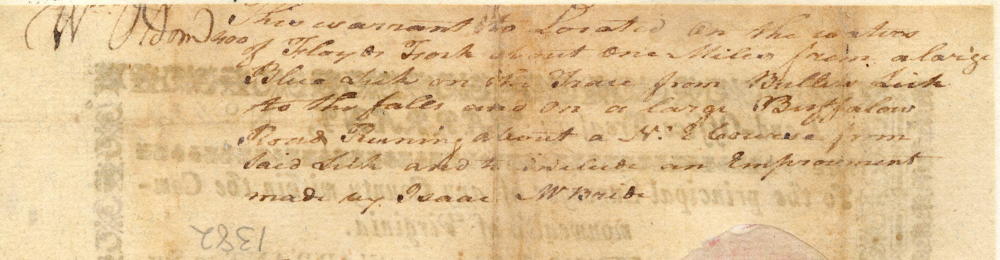 Wm Odom 400 This warrant to Located on the waters
of Floyds Fork about one Miles from a large
Blue Lick on the Trace from Bullits Lick
to the falls and on a large Buffalow
Road Runing about a N. E Course from
said Lick and to include an Emprovment
made by Isaac McBride
To the principal of any County within the Com-
monwealth of Virginia.
1382